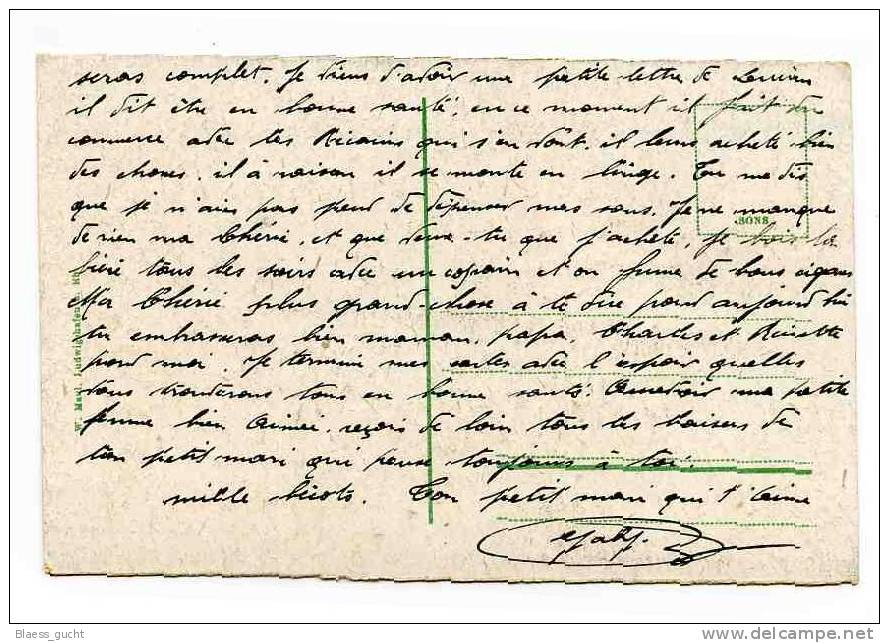 seras complet. Je viens d'avoir une petite lettre de
il dit être en bonne santé, en ce moment il fait du
commerce avec les Ricains qui s'en vont, il leurs acheté bien
des choses, il à raison il se monte en linge. Tu me dis
que je n'aies pas peur de dépenser mes sous. Je ne manque
de rien ma Chérie, et que veux-tu que j'achete, je bois la
bière tous les soirs avec un copain et on fume de bons cigares
Ma Chérie plus grand-chose à te dire pour aujourd'hui
tu embrasseras bien maman, papa, Charles et
pour moi. Je termine mes cartes avec l'espoir quelles
vous trouverons tous en bonne santé. Aurevoir ma petite
femme bien Aimée, reçois de loin tous les baisers de
ton petit mari qui pense toujours à toi.
mille bécots. Ton petit mari qui t'Aime
Gaby.
BONS
W. Mack, Ludwigshafen a. Rh.
Blaess_gucht
www.delcampe.net